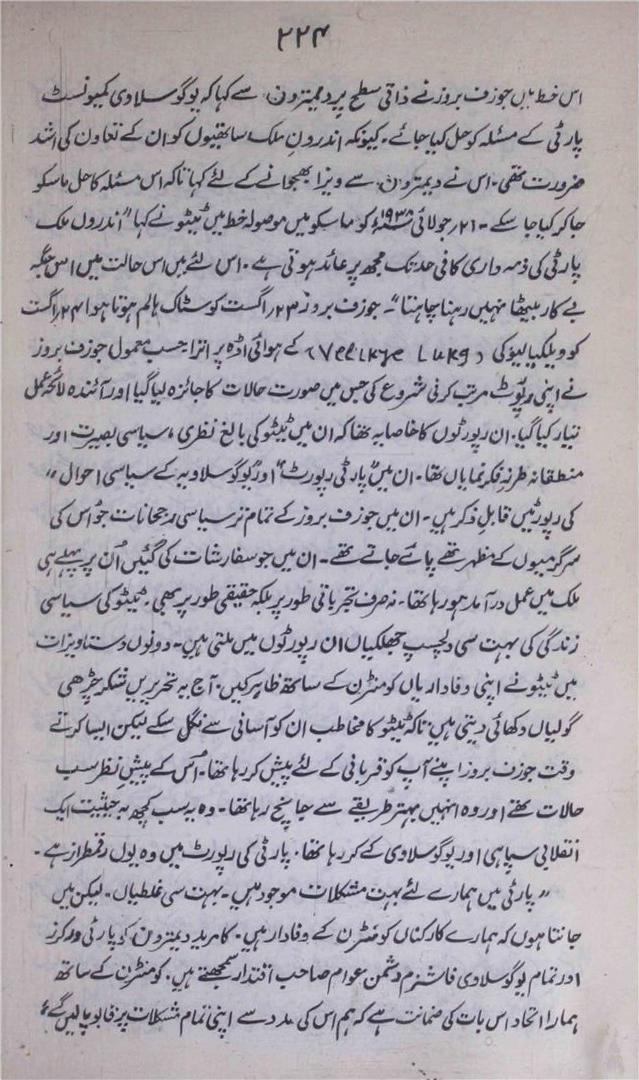 ۲۲۴
اس خط میں جوزف بروز نے ذاتی سطح پر دیمیترون سے کہا کہ یوگوسلاوی کمیونسٹ
پارٹی کے مسئلہ کو حل کیا جائے۔ کیونکہ اندرونِ ملک ساتھیوں کو ان کے تعاون کی اشد
ضرورت تھی۔ اس نے دیمترون سے ویزا بھجوانے کے لئے کہا تاکہ اس مسئلہ کا حل ماسکو
جا کر کیا جا سکے۔ ۲۱؍جولائی ۱۹۳۸ء کو ماسکو میں موصولہ خط میں ٹیٹو نے کہا "اندرون ملک
پارٹی کی ذمہ داری کافی حد تک مجھ پر عائد ہوتی ہے۔ اس لئے میں اس حالت میں اس جگہ
بے کار بیٹھا نہیں رہنا چاہتا"۔ جوزف بروز ۲۳؍اگست کو سٹاک ہالم ہوتا ہوا ۲۴؍اگست
کو ویلیکیا لیوکی (Velikye Luke) کے ہوائی اڈہ پر اترا۔ حسب معمول جوزف بروز
نے اپنی رپوٹ مرتب کرنی شروع کی جس میں صورت حالات کا جائزہ لیا گیا اور آئندہ لائحہ عمل
تیار کیا گیا۔ ان رپورٹوں کا خاصا یہ تھا کہ ان میں ٹیٹو کی بالغ نظری، سیاسی بصیرت اور
منطقانہ طرزِ فکر نمایاں تھا۔ ان میں "پارٹی رپورٹ" اور "یوگوسلاویہ کے سیاسی احوال"
کی رپورٹیں قابلِ ذکر ہیں۔ ان میں جوزف بروز کے تمام تر سیاسی رجحانات جو اُس کی
سرگرمیوں کے مظہر تھے پائے جاتے تھے۔ ان میں جو سفارشات کی گئیں اُن پر پہلے ہی
ملک میں عمل درآمد ہو رہا تھا۔ نہ صرف تجرباتی طور پر بلکہ حقیقی طور پر بھی۔ ٹیٹو کی سیاسی
زندگی کی بہت سی دلچسپ جھلکیاں ان رپورٹوں میں ملتی ہیں۔ دونوں دستاویزات
میں ٹیٹو نے اپنی وفاداریاں کومنٹرن کے ساتھ ظاہر کیں۔ آج یہ تحریریں شکر چڑھی
گولیاں دکھائی دیتی ہیں تاکہ ٹیٹو کا مخاطب ان کو آسانی سے نگل سکے لیکن ایسا کرتے
وقت جوزف بروز اپنے آپ کو قربانی کے لئے پیش کر رہا تھا۔ اُس کے پیشِ نظر سب
حالات تھے اور وہ انہیں بہتر طریقے سے جانچ رہا تھا۔ وہ یہ سب کچھ بہ حیثیت ایک
انقلابی سپاہی اور یوگوسلاوی کے کر رہا تھا۔ پارٹی کی رپورٹ میں وہ یوں رقمطراز ہے۔
"پارٹی میں ہمارے لئے بہت مشکلات موجود ہیں۔ بہت سی غلطیاں۔ لیکن میں
جانتا ہوں کہ ہمارے کارکناں کومنٹرن کے وفادار ہیں۔ کامریڈ دیمترون کو پارٹی ورکرز
اور تمام یوگوسلاوی فاشزم دشمن عوام صاحب اقتدار سمجھتے ہیں۔ کومنٹرن کے ساتھ
ہمارا اتحاد اس بات کی ضمانت ہے کہ ہم اس کی مدد سے اپنی تمام مشکلات پر قابو پا لیں گے"